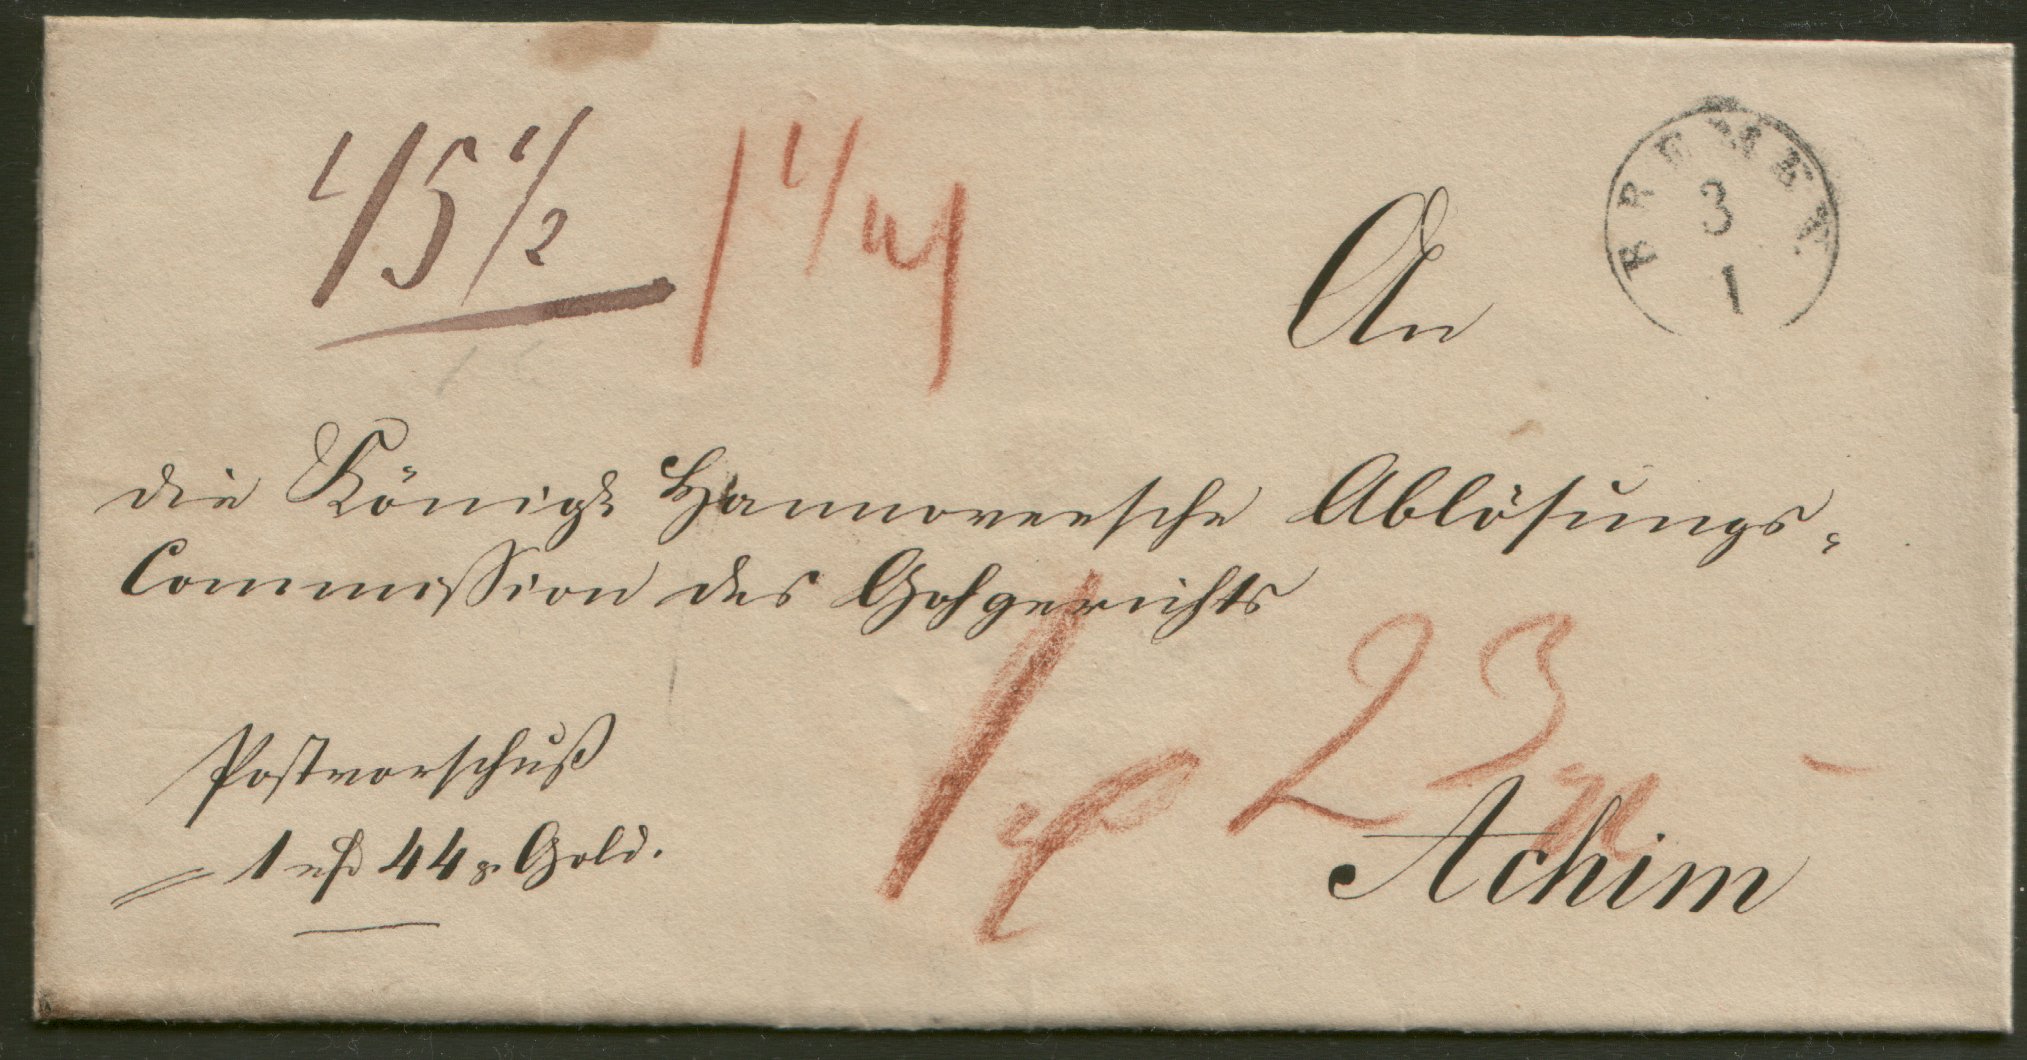 45 1/2
1 1/4
BREMEN
3
1
An
die Königl Hannoversche Ablösungs-
Commission des Gohgerichts
1 23
Achim
Postvorschuß
1 44 Gold.